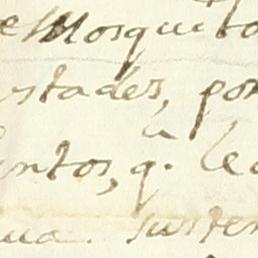 e Mosquito
stades, por
a
intos, q. le
ua. suste